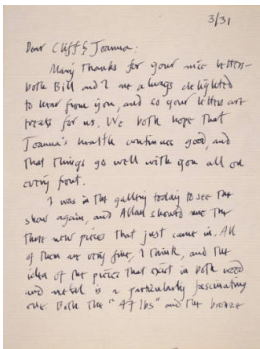 3/31
Dear Cliff & Joanna:
Many thanks for your nice letters –
both Bill and I are always delighted
to hear from you, and so your letters are
treats for us. We both hope that
Joanna's health continues good, and
that things go well with you all on
every front.
I was in the gallery today to see the
show again, and Allan showed me the
three new pieces that just came in. All
of them are very fine, I think, and the
idea of the pieces that exist in both wood
and metal is a particularly fascinating
one. Both the "47 lbs" and the bronze